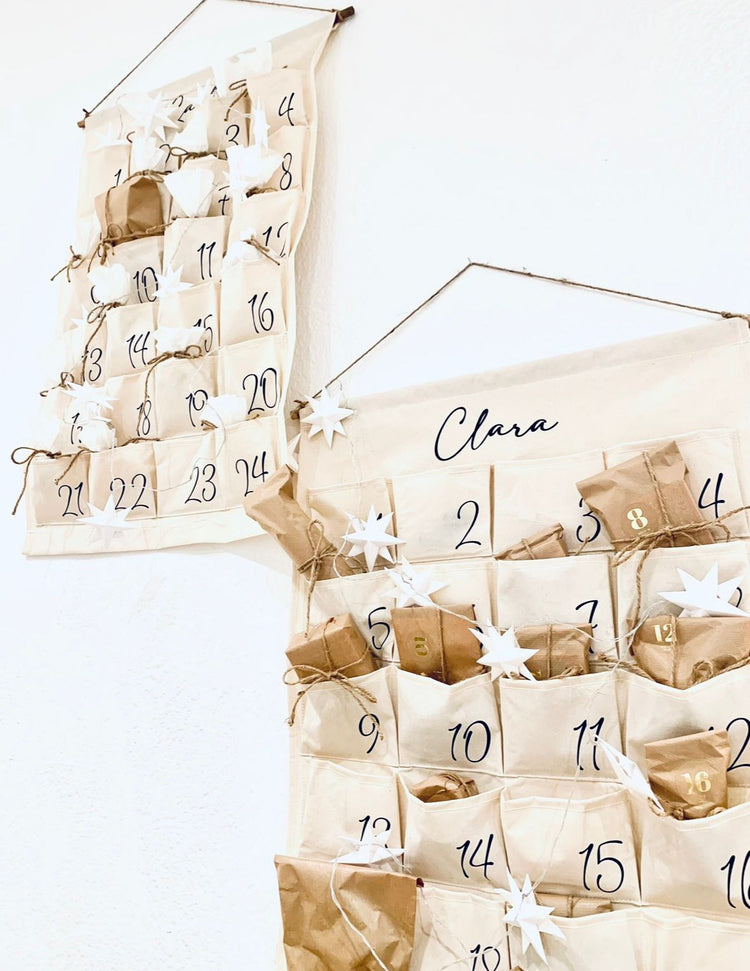 1 3 4
7 8
9 10 11 12
13 14 15 16
18 19 20
21 22 23 24
Clara
2 3 4
8
5 7
12
9 10 11 12
16
13 14 15 16